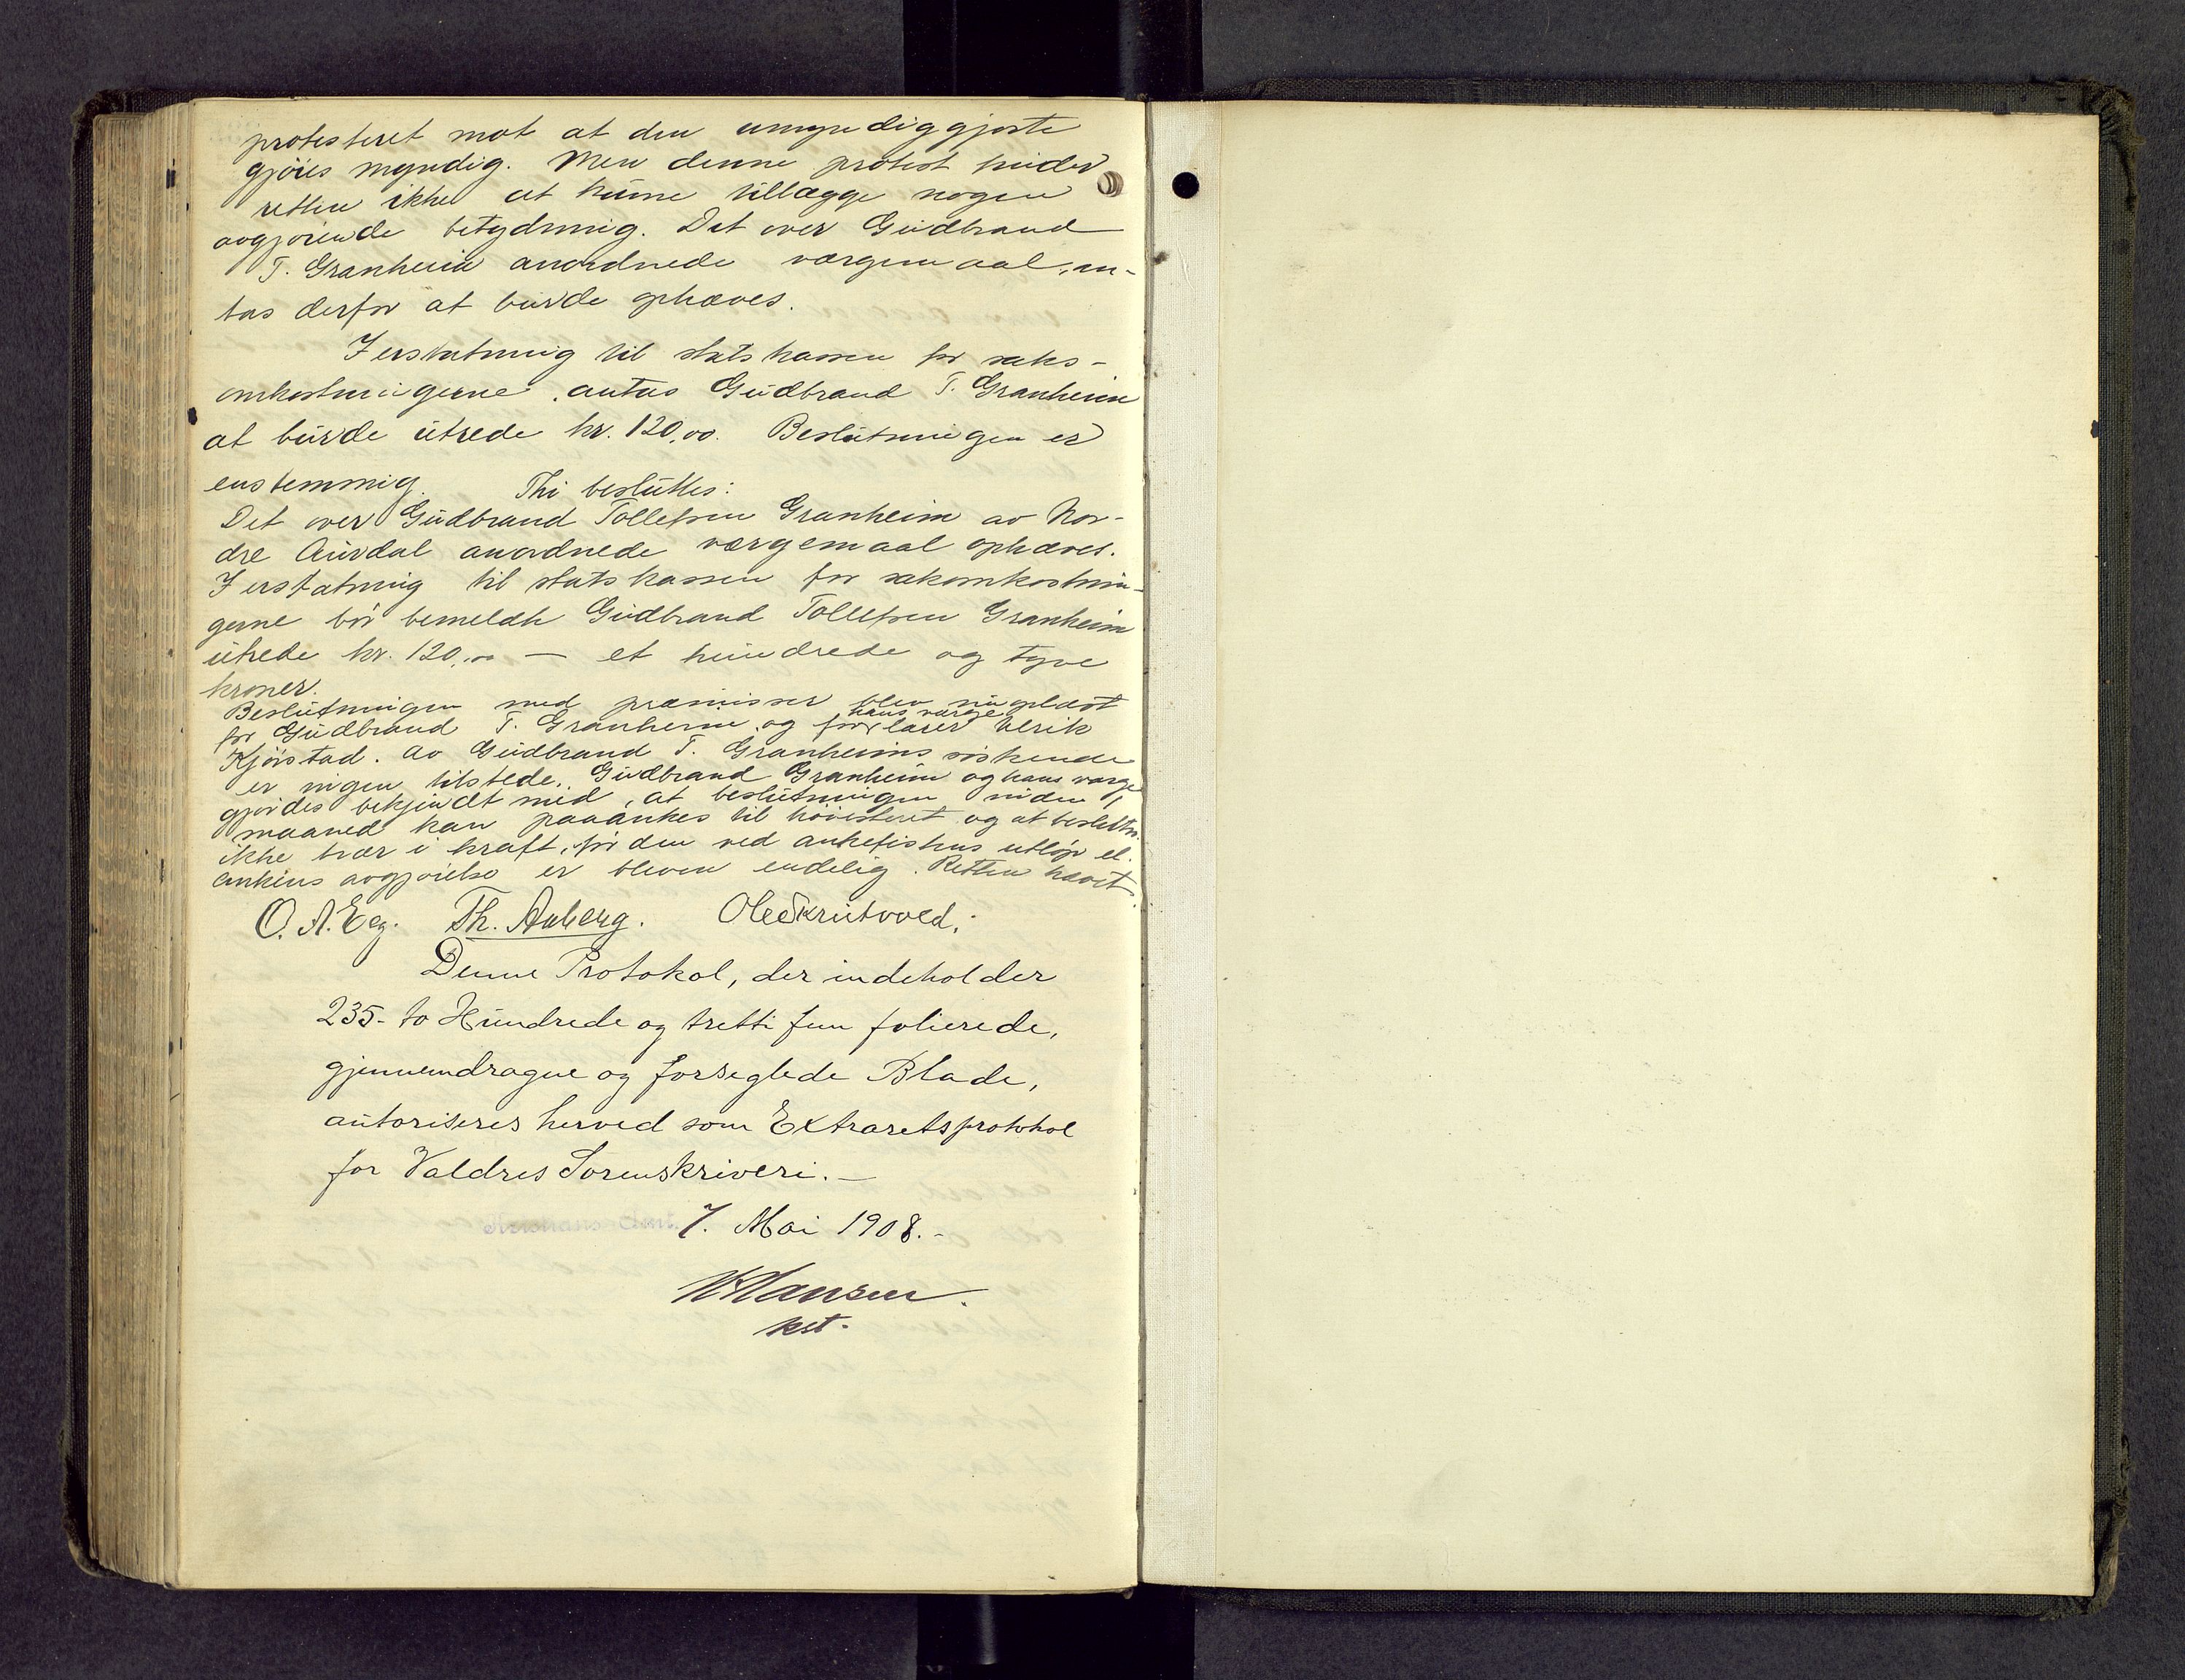 protesteret mot at den umyndiggjorte
gjöres myndig. Men denne protest finder
retten ikke at kunne tillægge nogen
avgjörende betydning. Det over Gudbrand
T. Granheim anordnede værgemaal, an-
tas derfor at burde ophæves.
I erstatning til statskassen for saks-
omkostningerne antas Gudbrand T. Granheim
at burde utrede kr. 120,00. Beslutningen er
enstemmig. Thi besluttes:
Det over Gudbrand Tollefsen Granheim av Nor-
dre Aurdal anordnede værgemaal ophæves.
I erstatning til statskassen for sakomkostnin-
gerne bör bemeldte Gudbrand Tollefsen Granheim
utrede kr. 120,00 — et hundrede og tyve
kroner.
Beslutningen med præmisser blev nu oplæst
for Gudbrand T. Granheim og for hans værge lærer Ulrik
Kjörstad. Av Gudbrand T. Granheims söskende
er ingen tilstede. Gudbrand Granheim og hans værge
gjordes bekjendt med, at beslutningen inden 1
maaned kan paaankes til höiesteret og at beslutn.
ikke trær i kraft, för den ved ankefristens utlöp el.
ankens avgjörelse er bleven endelig. Retten hævet.
O. A. Eeg. Th. Aaberg. Ole Skrutvold.
Denne Protokol, der indeholder
235- to Hundrede og tretti fem folierede,
gjennemdragne og forseglede Blade,
autoriseres herved som Extraretsprotokol
for Valdres Sorenskriveri.—
Kristians Amt. 7. Mai 1908.-
K Hansen.
kst.